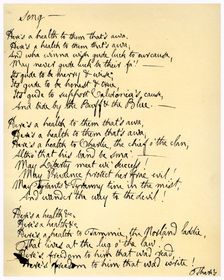 Song —
Here's a health to them that's awa,
Here's a health to them that's awa;
And wha winna wish gude luck to our cause,
May never gude luck be their fa'!
Its gude to be merry & wise,
Its gude to be honest & true,
Its gude to support Caledonia's cause,
And bide by the Buff & the Blue. —
Here's a health to them that's awa,
Here's a health to them that's awa;
Here's a health to Charlie, the chief o' the clan,
Altho' that his band be sma'. —
May Liberty meet wi' success!
May Prudence protect her frae evil!
May Tyrants & Tyranny tine in the mist,
And wander the way to the devil!
Here's a health &c
Here's a health &c
Here's a health to Tammie, the Norland laddie,
That lives at the lug o' the law!
Here's freedom to him that wad read,
Here's freedom to him that wad write!